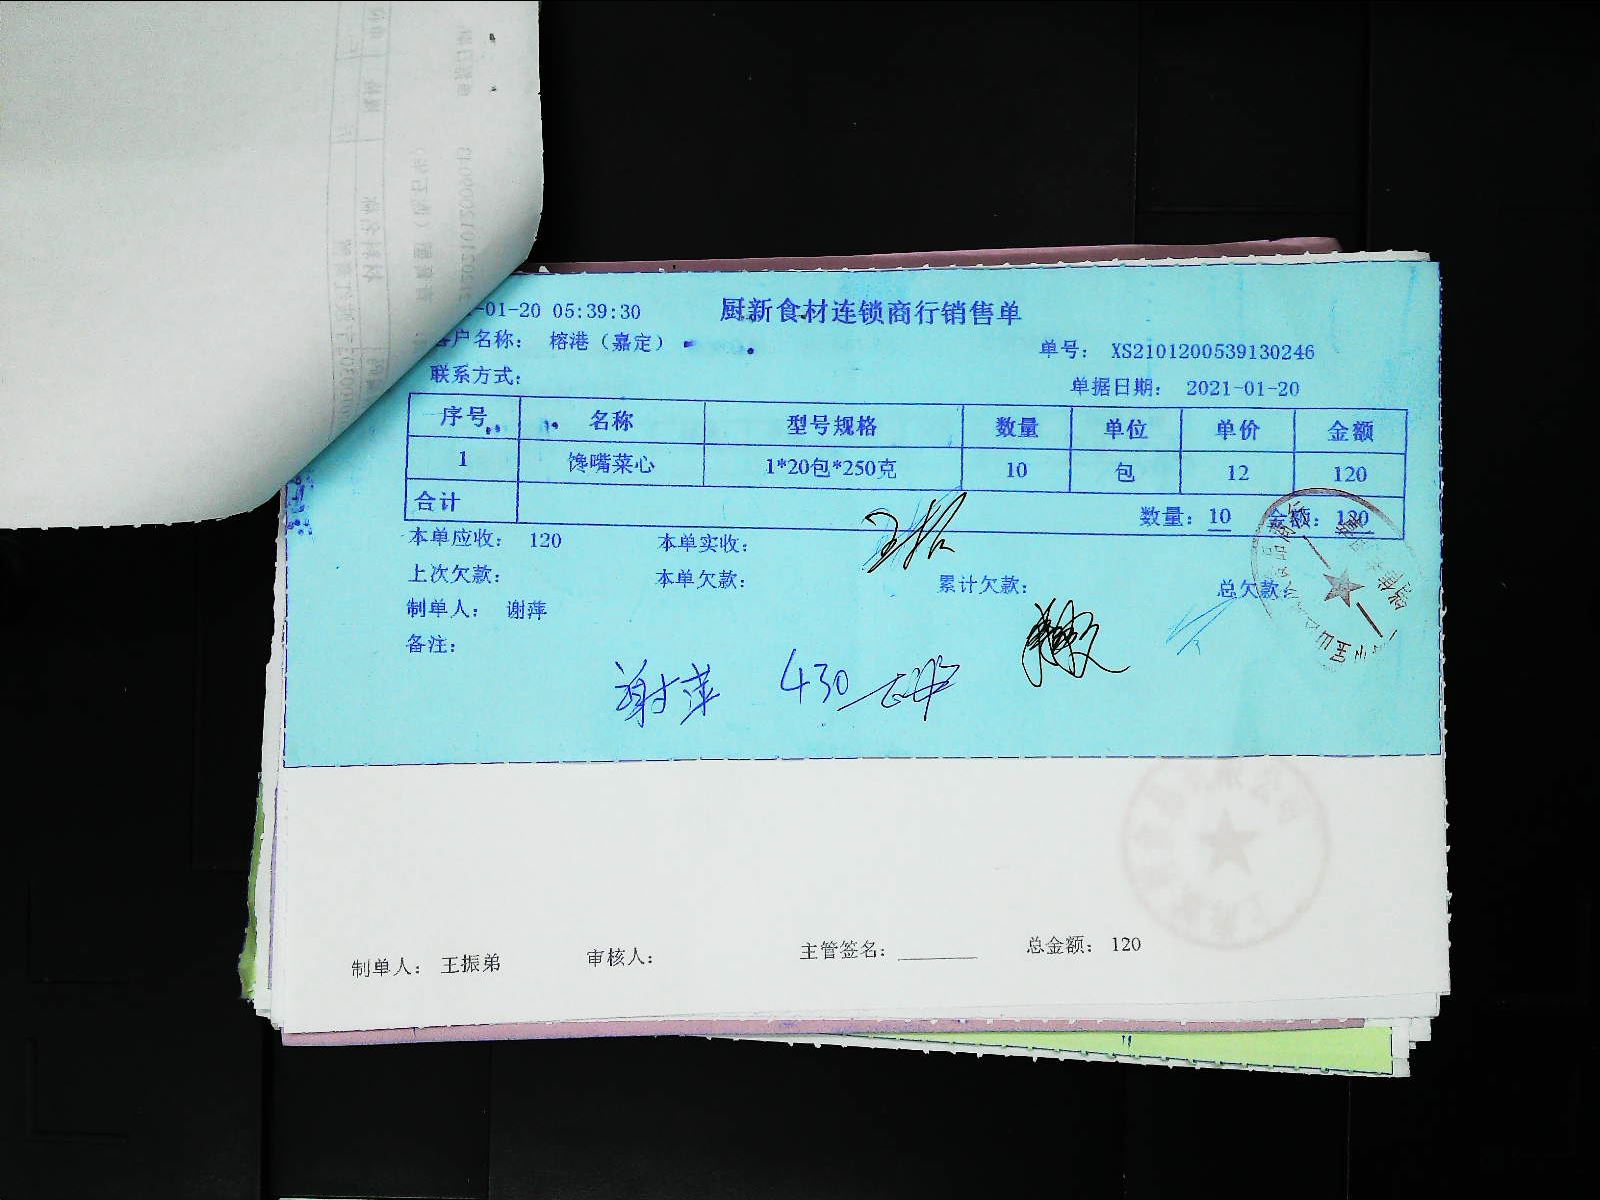 -01-20 05:39:30
厨新食材连锁商行销售单
户名称： 榕港（嘉定）
单号： XS2101200539130246
联系方式：
单据日期： 2021-01-20
序号 名称 型号规格 数量 单位 单价 金额
1 馋嘴菜心 1*20包*250克 10 包 12 120
合计 数量：10 金额：120
本单应收： 120 本单实收：
上次欠款： 本单欠款： 累计欠款： 总欠款：
制单人： 谢萍
备注：
谢萍 430
制单人： 王振弟 审核人： 主管签名：______ 总金额： 120